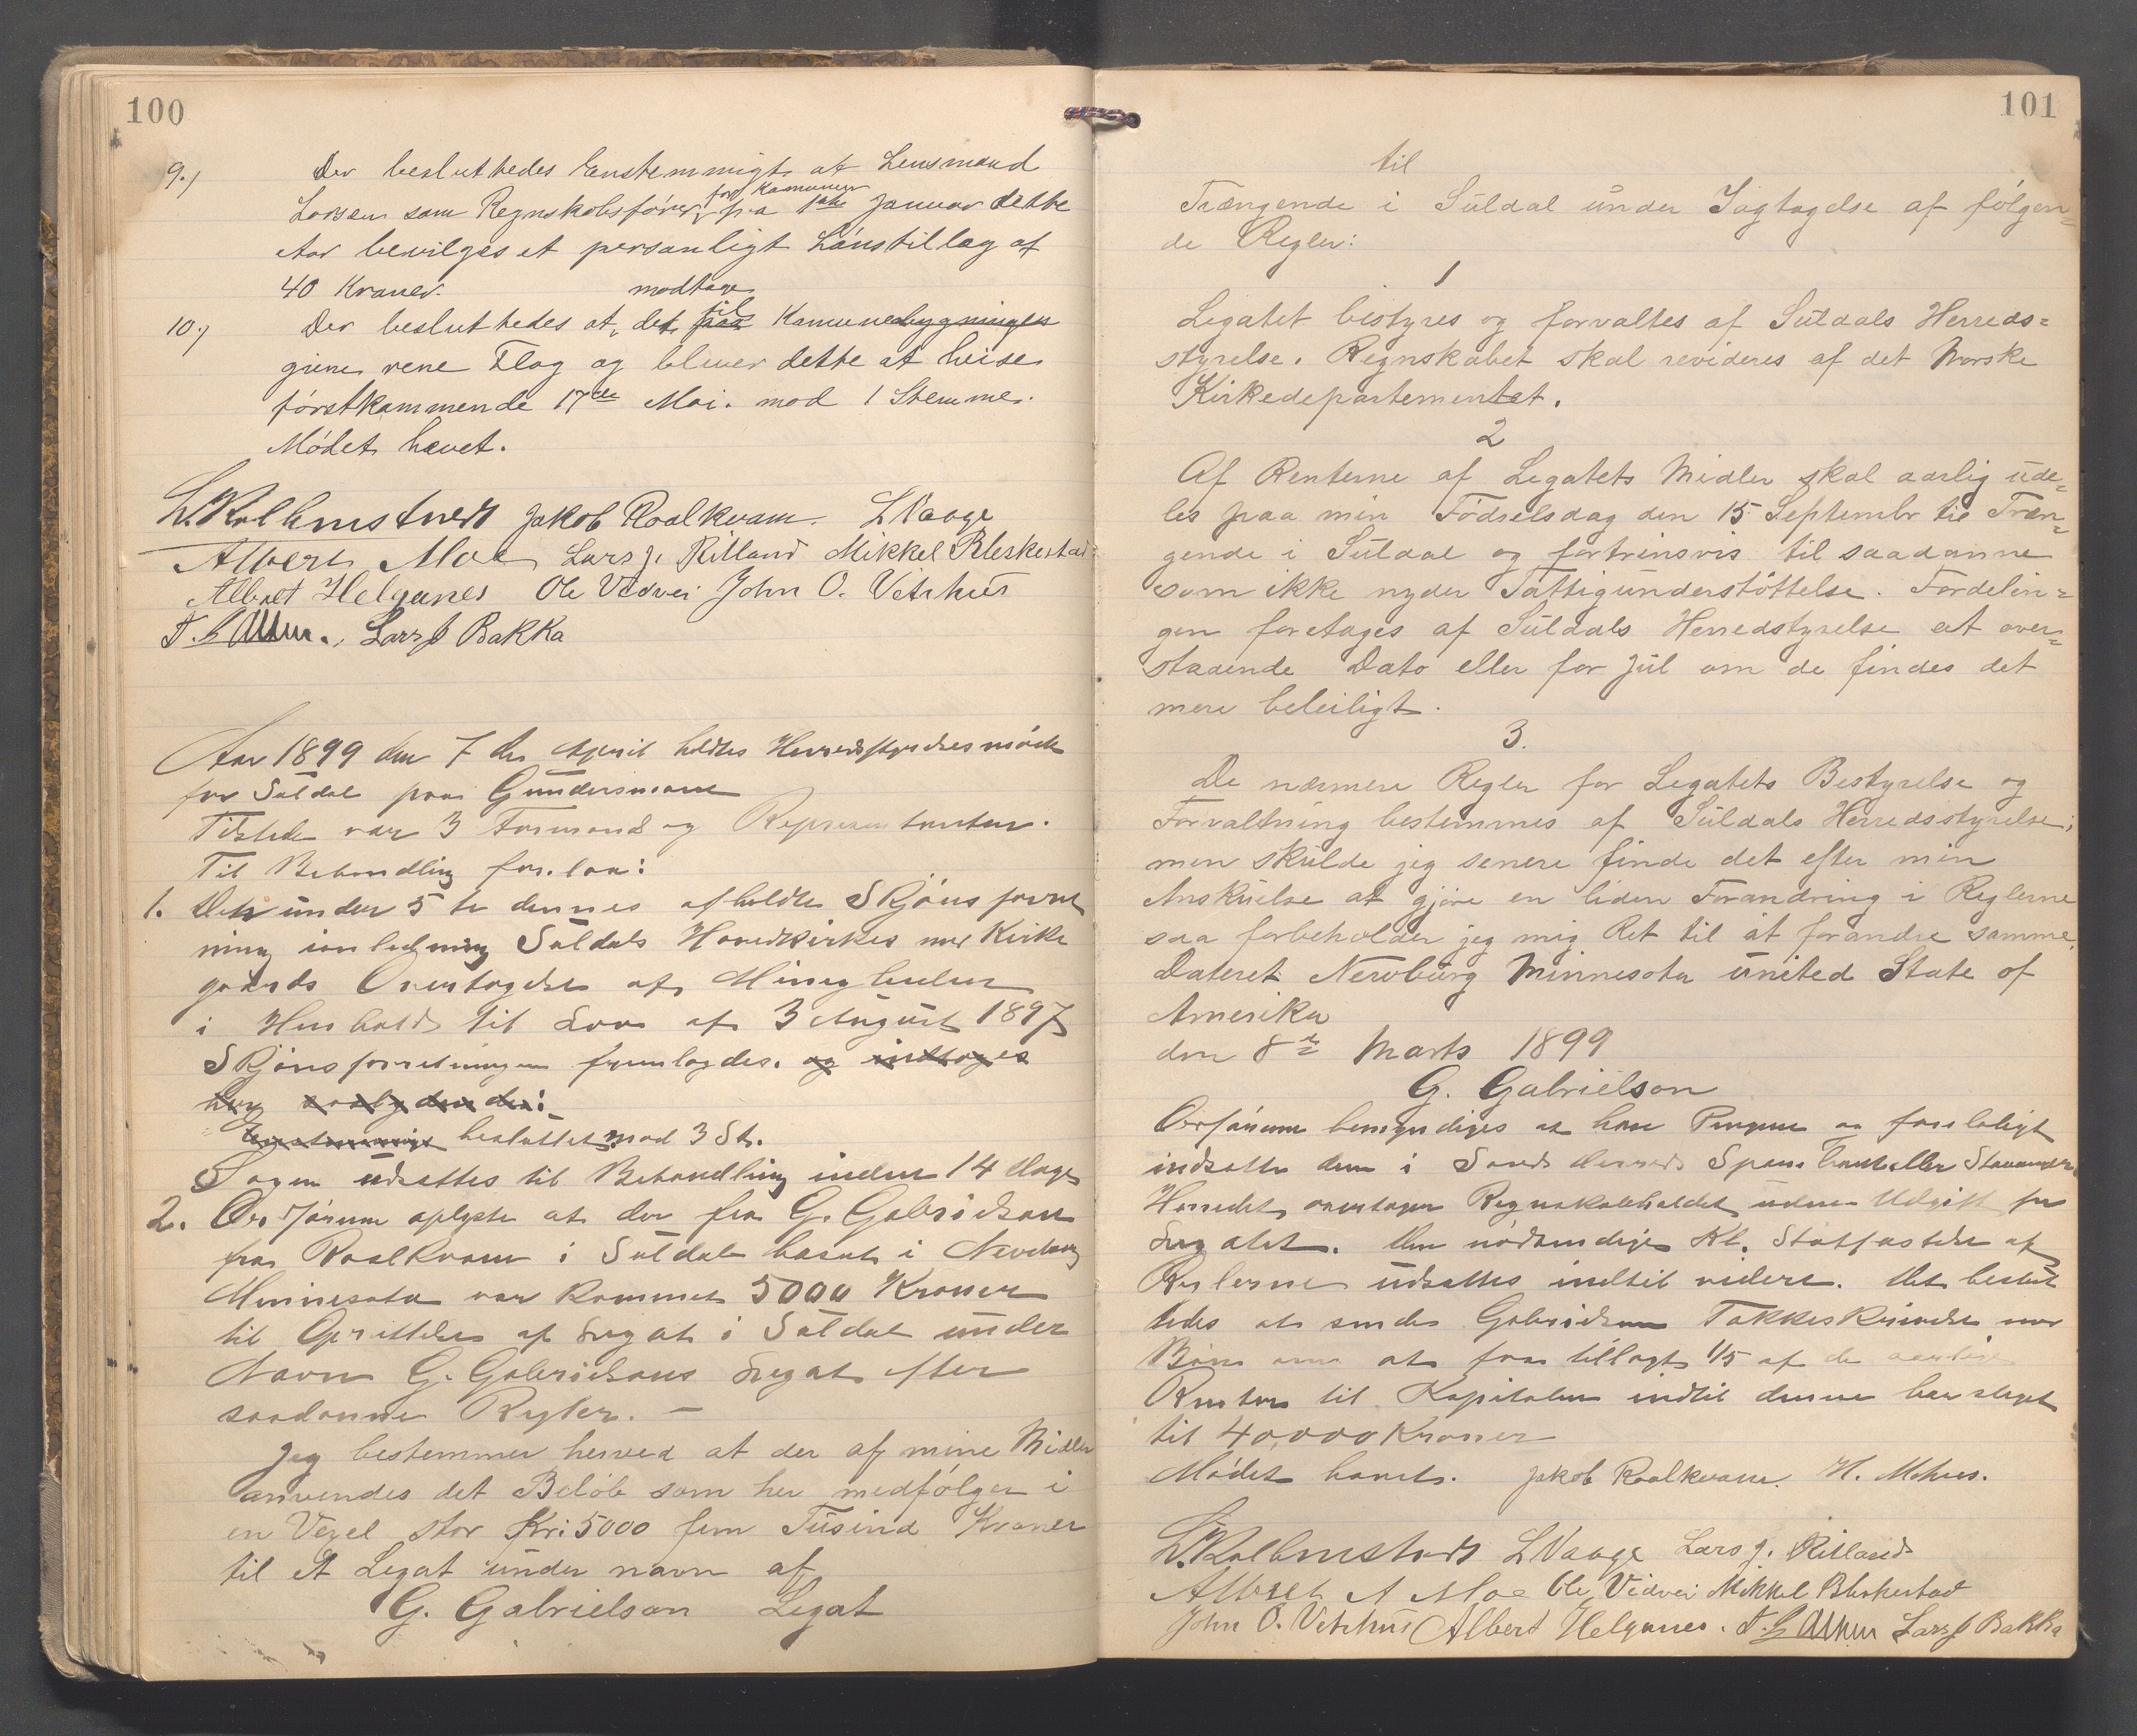 100
9.) Der besluttedes Enstemmigt at Lensmand
Larsen som Regnskabsfører for Kamunen fra 1ste Januar dette
Aar bevilges et personligt Lønstillæg af
40 Kroner.
10.) Der besluttedes at modtage det til paa Kamunebygningen
givne rene Flag og bliver dette at heise
førstkommende 17de Mai. mod 1 Stemme.
Mødet hævet.
Jakob Roalkvam. L Vaage
Albert Moe Lars J. Rilland Mikkel Bleskestad
Albert Helganes Ole Vidvei John O. Vetrhus
Lars J Bakka
Aar 1899 den 7de April holdtes Herredsstyrelsesmøde
for Suldal paa Gundersmoen
Tilstede var 3 Formænd og Repræsentanter.
Til Behandling forelaa:
1. Den under 5te dennes afholdte Skjønsforret
ning ianledning Suldals Hovedkirkes med Kirke
gaards Overtagelse af Menigheden
i Henhold til Lov af 3 August 1897
Skjønsforretningen fremlagdes. og indtages
her saalydende:
Enstemmigt besluttet mod 3 St.
Sagen udsættes til Behandling inden 14 Dage
2. Ordføreren oplyste at der fra G. Gabrielson
fra Roalkvam i Suldal bosat i Newburg
Minnesota var kommet 5000 Kroner
til Oprettelse af Legat i Suldal under
Navn G. Gabrielsons Legat efter
saadanne Regler. —
Jeg bestemmer herved at der af mine Midler
anvendes det Beløb som her medfølger i
en Vexel stor Kr: 5000 fem Tusind Kroner
til et Legat under navn af
G. Gabrielson Legat
101
til
Trængende i Suldal under Iagtagelse af følgen=
de Regler:
1
Legatet bestyres og forvaltes af Suldals Herreds=
styrelse. Regnskabet skal revideres af det Norske
Kirkedepartementet.
2
Af Renterne af Legatets Midler skal aarlig ude=
les paa min Fødselsdag den 15 Septembr til Træn=
gende i Suldal og fortrinsvis til saadanne
som ikke nyder Fattigunderstøttelse. Fordelin=
gen foretages af Suldals Herredstyrelse at oven=
staaende Dato eller før Jul om de findes det
mere beleiligt.
3.
De nærmere Regler for Legatets Bestyrelse og
Forvaltning bestemmes af Suldals Herredsstyrelse;
men skulde jeg senere finde det efter min
Anskuelse at gjøre en liden Forandring i Reglerne
saa forbeholder jeg mig Ret til at forandre samme.
Dateret Newburg Minnesota United State of
Amerika
den 8de Marts 1899
G. Gabrielson
Ordføreren bemyndiges at hæve Pengene og foreløbigt
indsætte dem i Sands Herreds Sparebank eller Stavanger
Herredet overtager Regnskabsholdet uden Udgift for
Legatet. Den nødvendige Kl. Statfæstelse af
Reglerne udsættes indtil videre. Det beslut
tedes at sende Gabrielson Takkeskrivelse med
Bøn om at faa tillagt 1/5 af de aarlige
Renter til Kapitalen indtil denne har steget
til 40,000 Kroner
Mødet hævet. Jakob Roalkvam. H. Mehus.
L Vaage Lars J. Rilland
Albret A Moe Ole Vidvei Mikkel Bleskestad
John O. Vetrhus Albert Helganes. Lars J Bakka